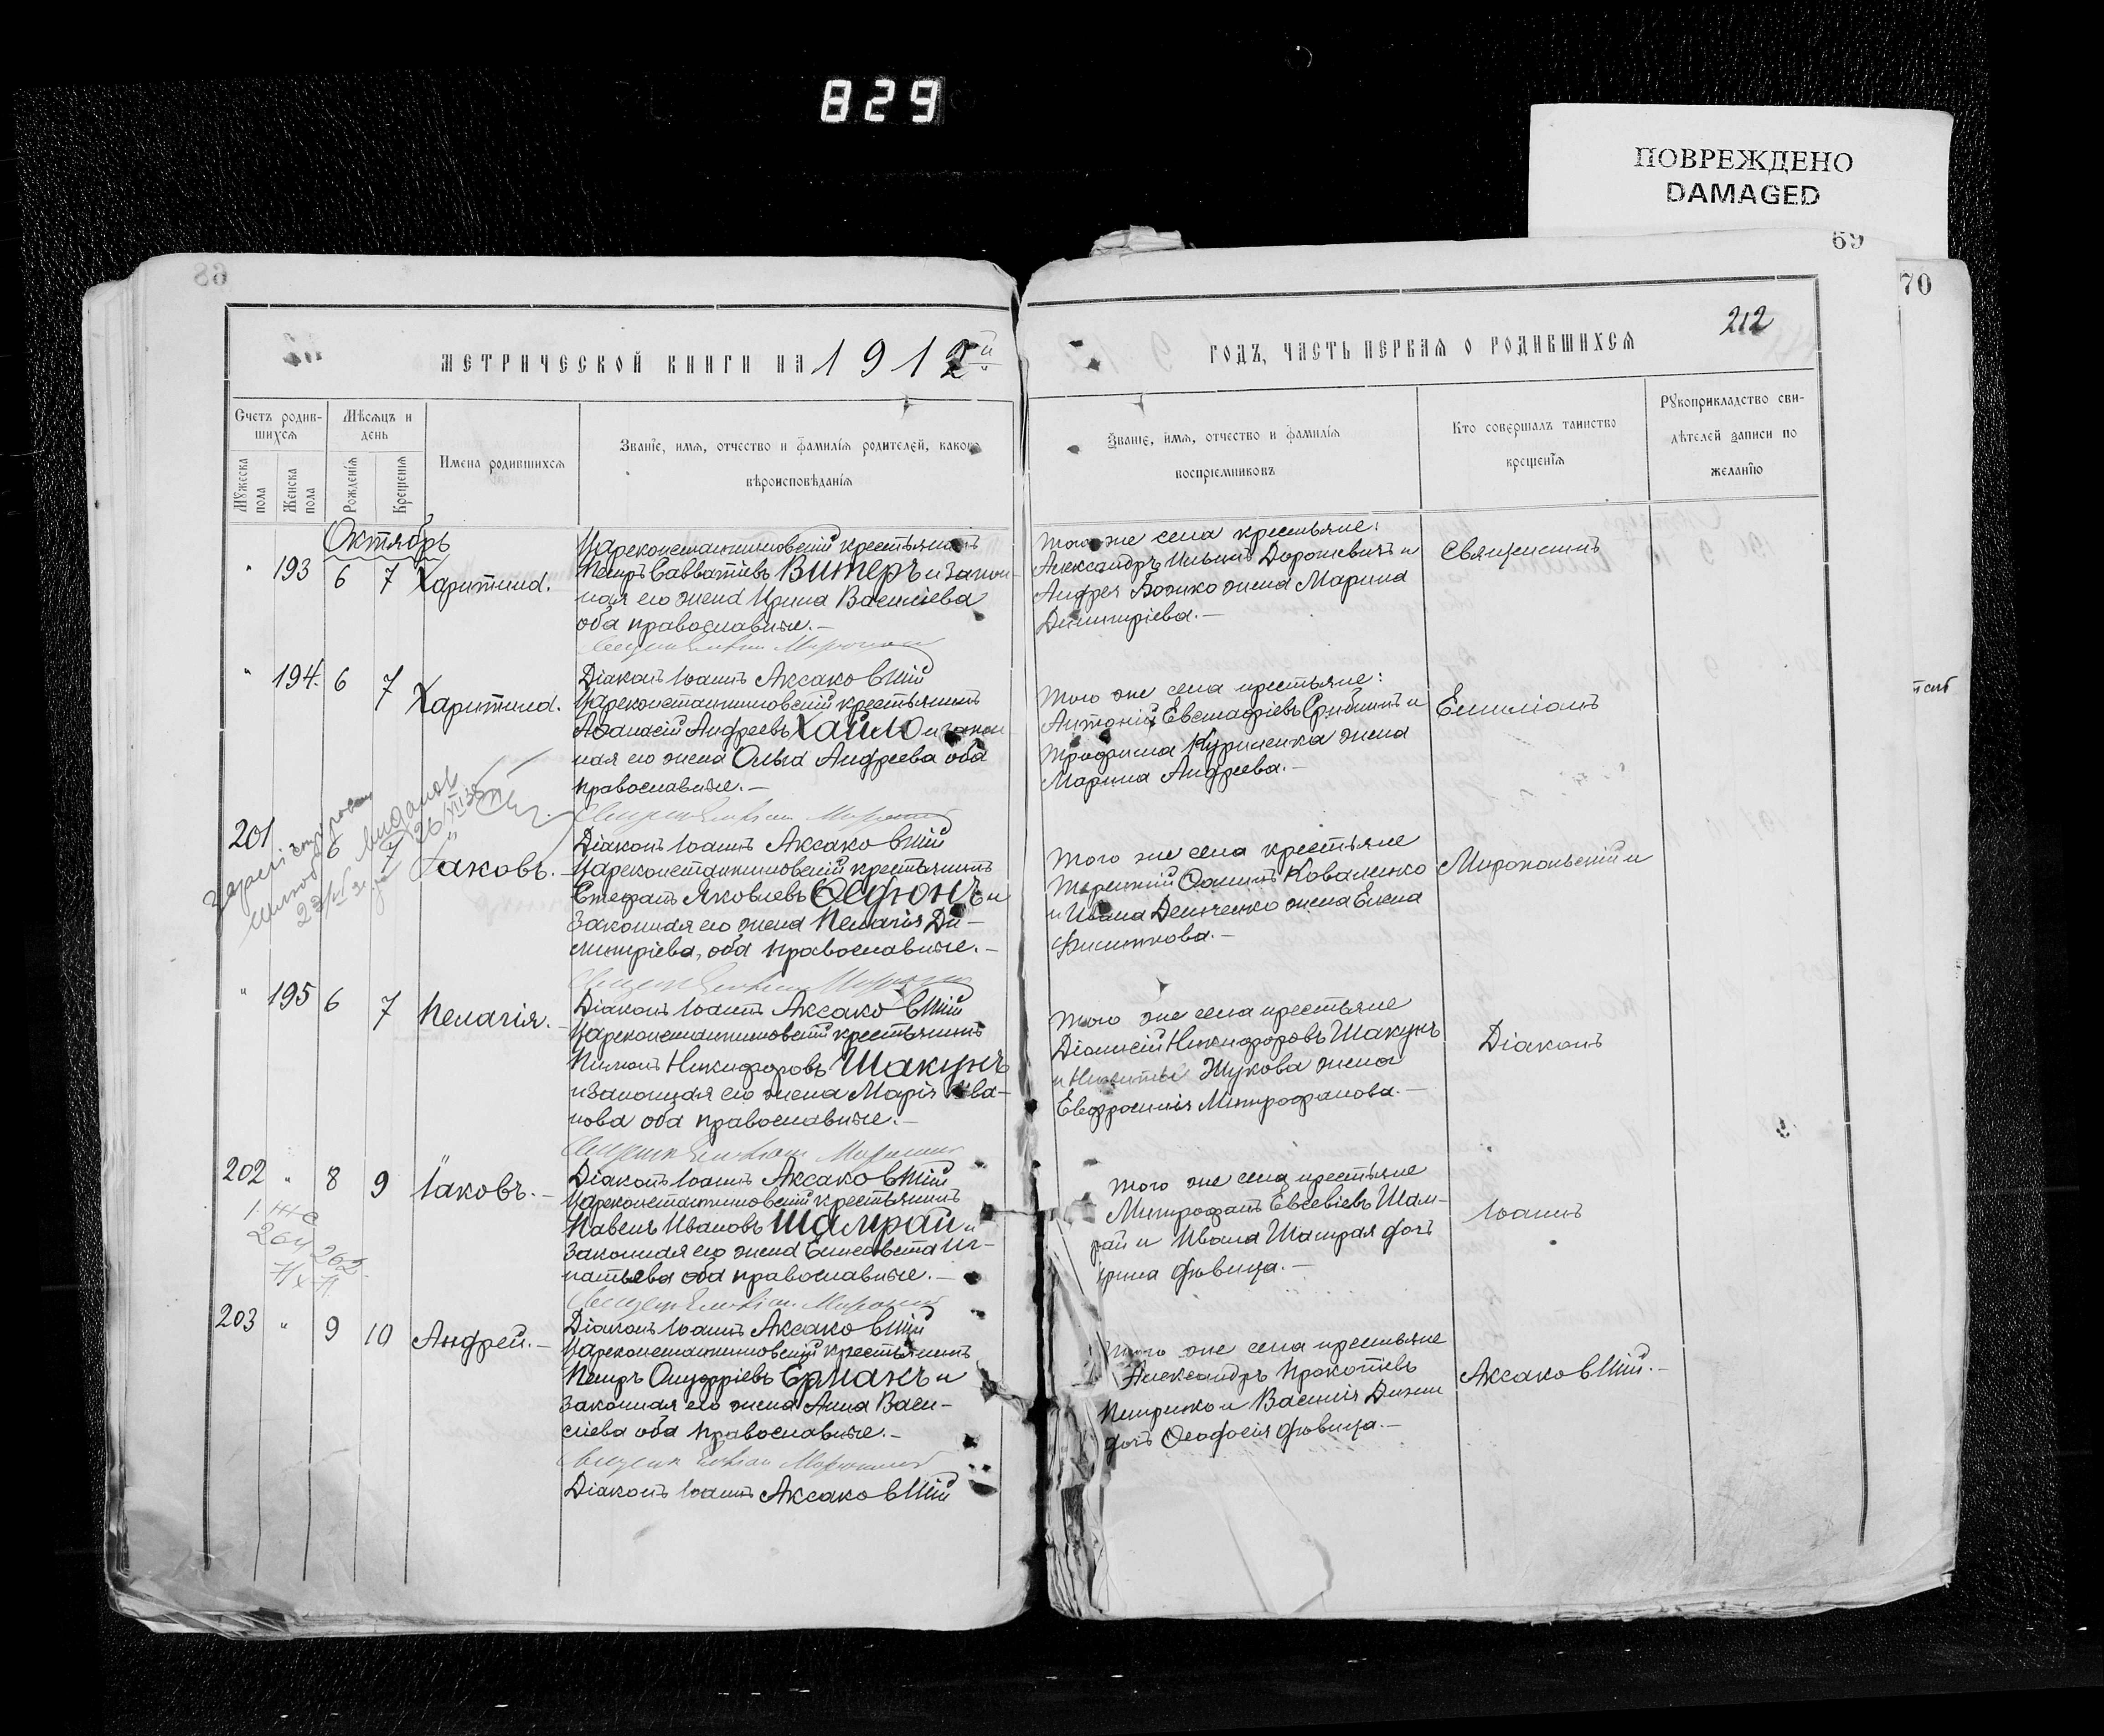 829
ПОВРЕЖДЕНО
DAMAGED
68
69
70
212
МЕТРИЧЕСКОЙ КНИГИ НА 1912й
ГОДЪ, ЧАСТЬ ПЕРВАЯ О РОДИВШИХСЯ
Счетъ родив-
шихся
Мужеска пола
Женска пола
Мѣсяцъ и
день
Рожденія
Крещенія
Имена родившихся
Званіе, имя, отчество и фамилія родителей, какого
вѣроисповѣданія
Званіе, имя, отчество и фамилія
воспріемниковъ
Кто совершалъ таинство
крещенія
Рукоприкладство сви-
дѣтелей записи по
желанію
Октябрь
" 193 6 7 Харитина.
Цареконстантиновскій крестьянинъ
Петръ Савватіевъ Витеръ и закон-
ная его жена Ирина Василіева
оба православные.—
Того же села крестьяне:
Александръ Ильинъ Дорошевичъ и
Андрея Божко жена Марина
Димитріева.—
Священникъ
Діаконъ Іоаннъ Аксаковскій
" 194. 6 7 Харитина.
Цареконстантиновскій крестьянинъ
Аѳанасій Андреевъ Хайло и закон
ная его жена Ольга Андреева оба
православные.—
Того же села крестьяне:
Антоній Евстафіевъ и
Трофима Куриленка жена
Марина Андреева.—
Емиліанъ
Діаконъ Іоаннъ Аксаковскій
201 6 7 Іаковъ.—
Цареконстантиновскій крестьянинъ
Стефанъ Яковлевъ и
законная его жена Пелагія Ди-
митріева, оба православные.—
Того же села крестьяне
Терентій Коваленко
и Ивана Демченко жена Елена
Филиппова.—
Миропольскій и
Діаконъ Іоаннъ Аксаковскій
" 195 6 7 Пелагія.—
Цареконстантиновскій крестьянинъ
Пименъ Никифоровъ Шакунъ
и законная его жена Марія Ива-
нова оба православные.—
Того же села крестьяне
Діонисій Никифоровъ Шакунъ
и Никиты Жукова жена
Евфросинія Митрофанова.—
Діаконъ
Діаконъ Іоаннъ Аксаковскій
202 " 8 9 Іаковъ.—
Цареконстантиновскій крестьянинъ
Павелъ Ивановъ Шамрай и
законная его жена Елисавета Иг-
натьева оба православные.—
Того же села крестьяне
Митрофанъ Евсевіевъ Шам-
рай и Ивана Шамрая дочь
Ірина дѣвица.—
Іоаннъ
Діаконъ Іоаннъ Аксаковскій
203 " 9 10 Андрей.—
Цареконстантиновскій крестьянинъ
Петръ Онуфріевъ Ермакъ и
законная его жена Анна Васи-
ліева оба православные.—
Того же села крестьяне
Александръ Прокопіевъ
Петренко и Василія
дочь Ѳеодосія дѣвица.—
Аксаковскій.—
Діаконъ Іоаннъ Аксаковскій